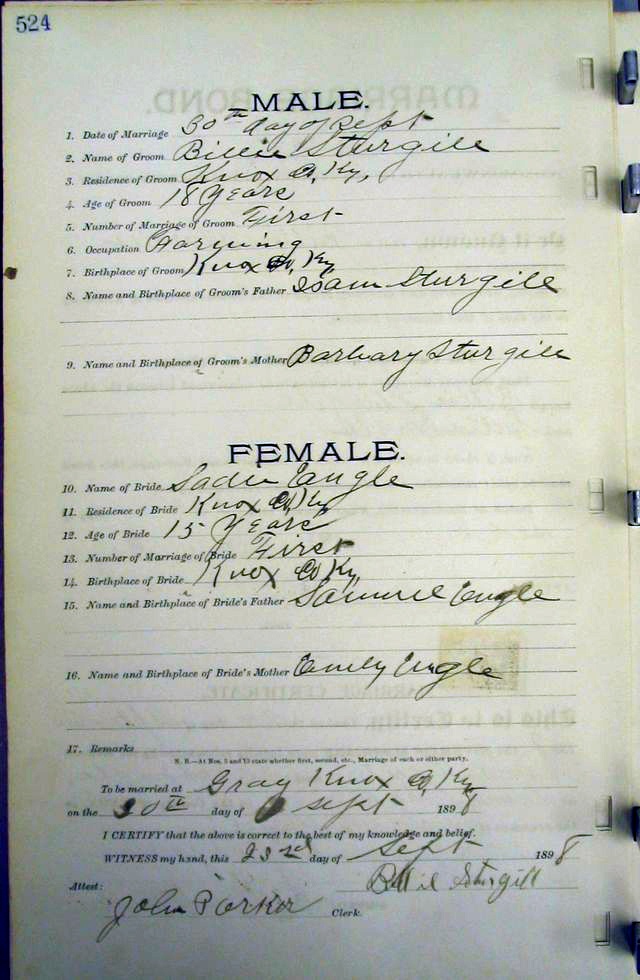 524
MALE.
1. Date of Marriage 30th day of Sept
2. Name of Groom Billie Sturgill
3. Residence of Groom Knox Co, Ky,
4. Age of Groom 18 Years
5. Number of Marriage of Groom First
6. Occupation Farming
7. Birthplace of Groom Knox Co, Ky
8. Name and Birthplace of Groom's Father Isam Sturgill
9. Name and Birthplace of Groom's Mother Barbary Sturgill
FEMALE.
10. Name of Bride Sadie Engle
11. Residence of Bride Knox Co, Ky
12. Age of Bride 15 Years
13. Number of Marriage of Bride First
14. Birthplace of Bride Knox Co Ky
15. Name and Birthplace of Bride's Father Samuel Engle
16. Name and Birthplace of Bride's Mother Emily Engle
17. Remarks
N. B.—At Nos. 5 and 13 state whether first, second, etc., Marriage of each or either party.
To be married at Gray Knox Co, Ky
on the 30th day of Sept 1898
I CERTIFY that the above is correct to the best of my knowledge and belief.
WITNESS my hand, this 23rd day of Sept 1898
Billie Sturgill
Attest:
John Parker Clerk.